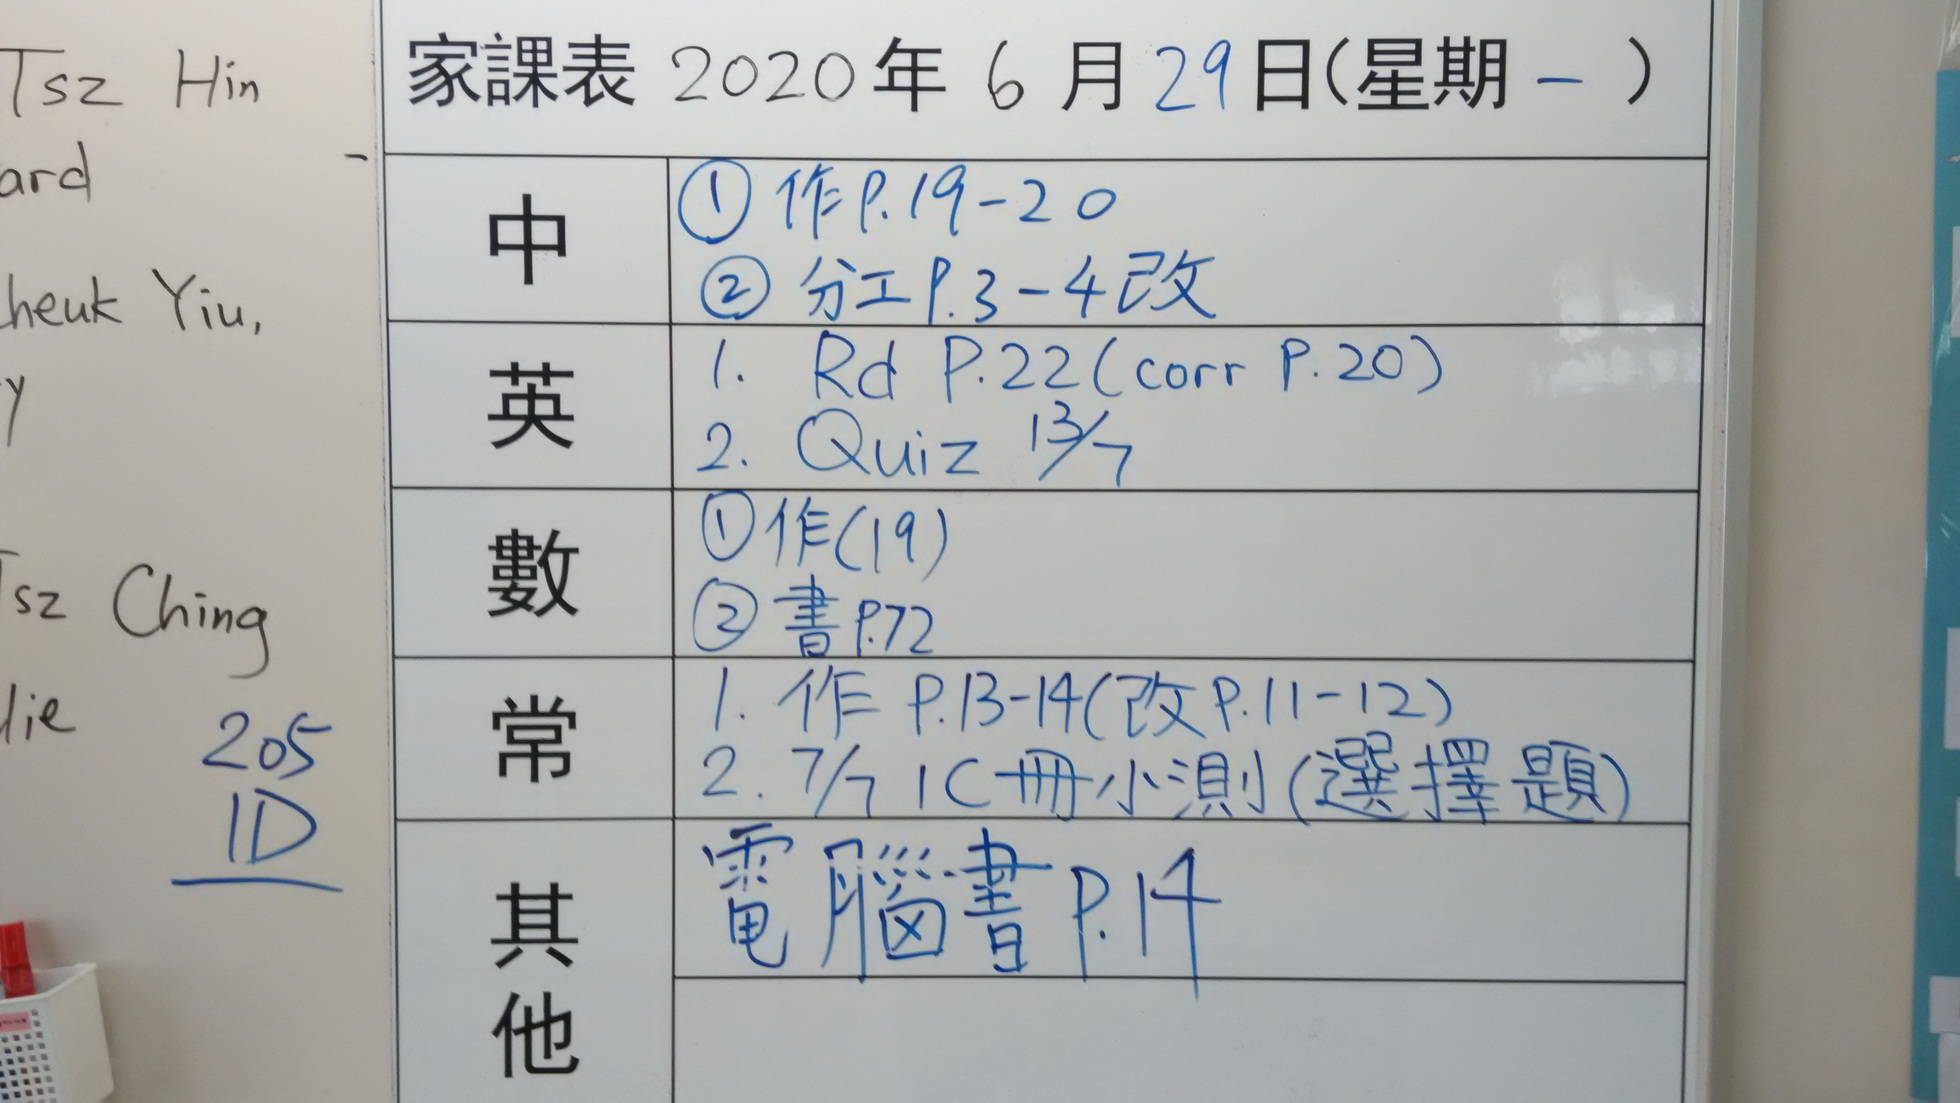 Tsz Hin
ard
heuk Yiu,
y
Tsz Ching
lie
205
1D
家課表 2020年6月29日(星期一)
中
① 作P.19-20
② 分工P.3-4改
英
1. Rd P.22(corr P.20)
2. Quiz 13/7
數
① 作(19)
② 書P.72
常
1. 作 P.13-14(改P.11-12)
2. 7/7 1C冊小測(選擇題)
其他
電腦書P.14